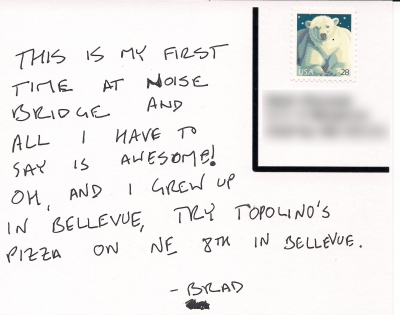 THIS IS MY FIRST
TIME AT NOISE
BRIDGE AND
ALL I HAVE TO
SAY IS AWESOME!
OH, AND I GREW UP
IN BELLEVUE, TRY TOPOLINO'S
PIZZA ON NE 8TH IN BELLEVUE.
- BRAD
USA 28